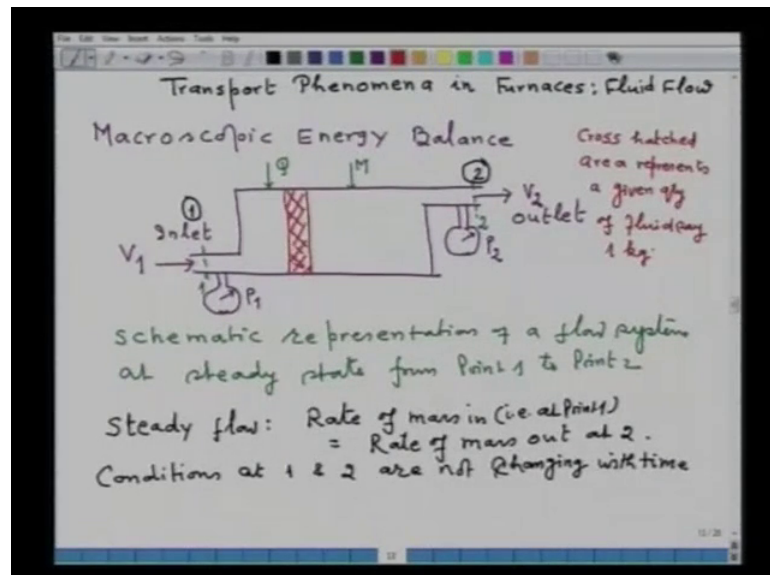 File Edit View Insert Actions Tools Help
Transport Phenomena in Furnaces: Fluid Flow
Macroscopic Energy Balance
Cross hatched
area represents
a given qty
of fluid say
1 kg.
Q
M
1
Inlet
V1
1
P1
2
V2
outlet
2
P2
Schematic representation of a flow system
at steady state from Point 1 to Point 2
Steady flow: Rate of mass in (i.e. at Point 1)
= Rate of mass out at 2.
Conditions at 1 & 2 are not changing with time
12